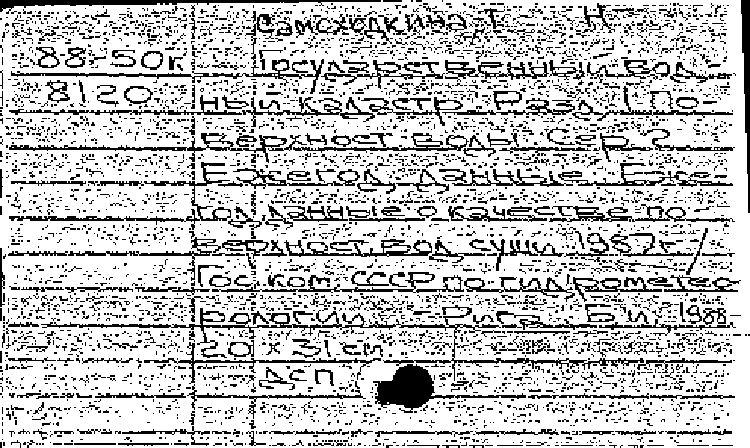 Самсходкина Т Н
88-50к Государственный вод-
8120 ный кадастр. Разд. 1 По-
верхност. воды Сер. 2
Ежегод. данные. Еже-
год. данные о качестве по-
верхност. вод суши 1987г. /
Гос. ком. СССР по гидрометео-
рологии. - Рига: Б.и., 1988-
20 х 31 см
ДСП